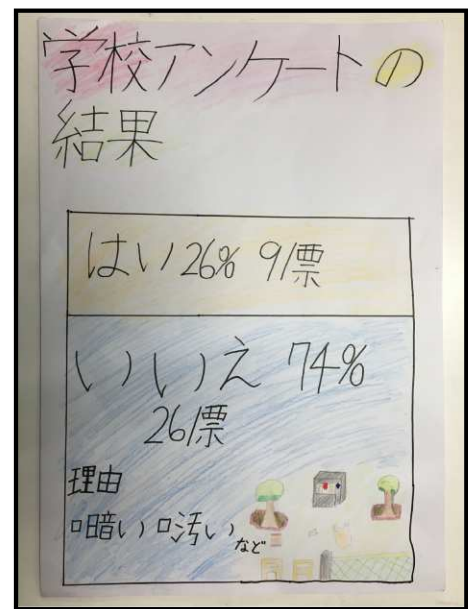 学校アンケートの
結果
はい26% 91票
いいえ 74%
261票
理由
口暗い口汚い
など